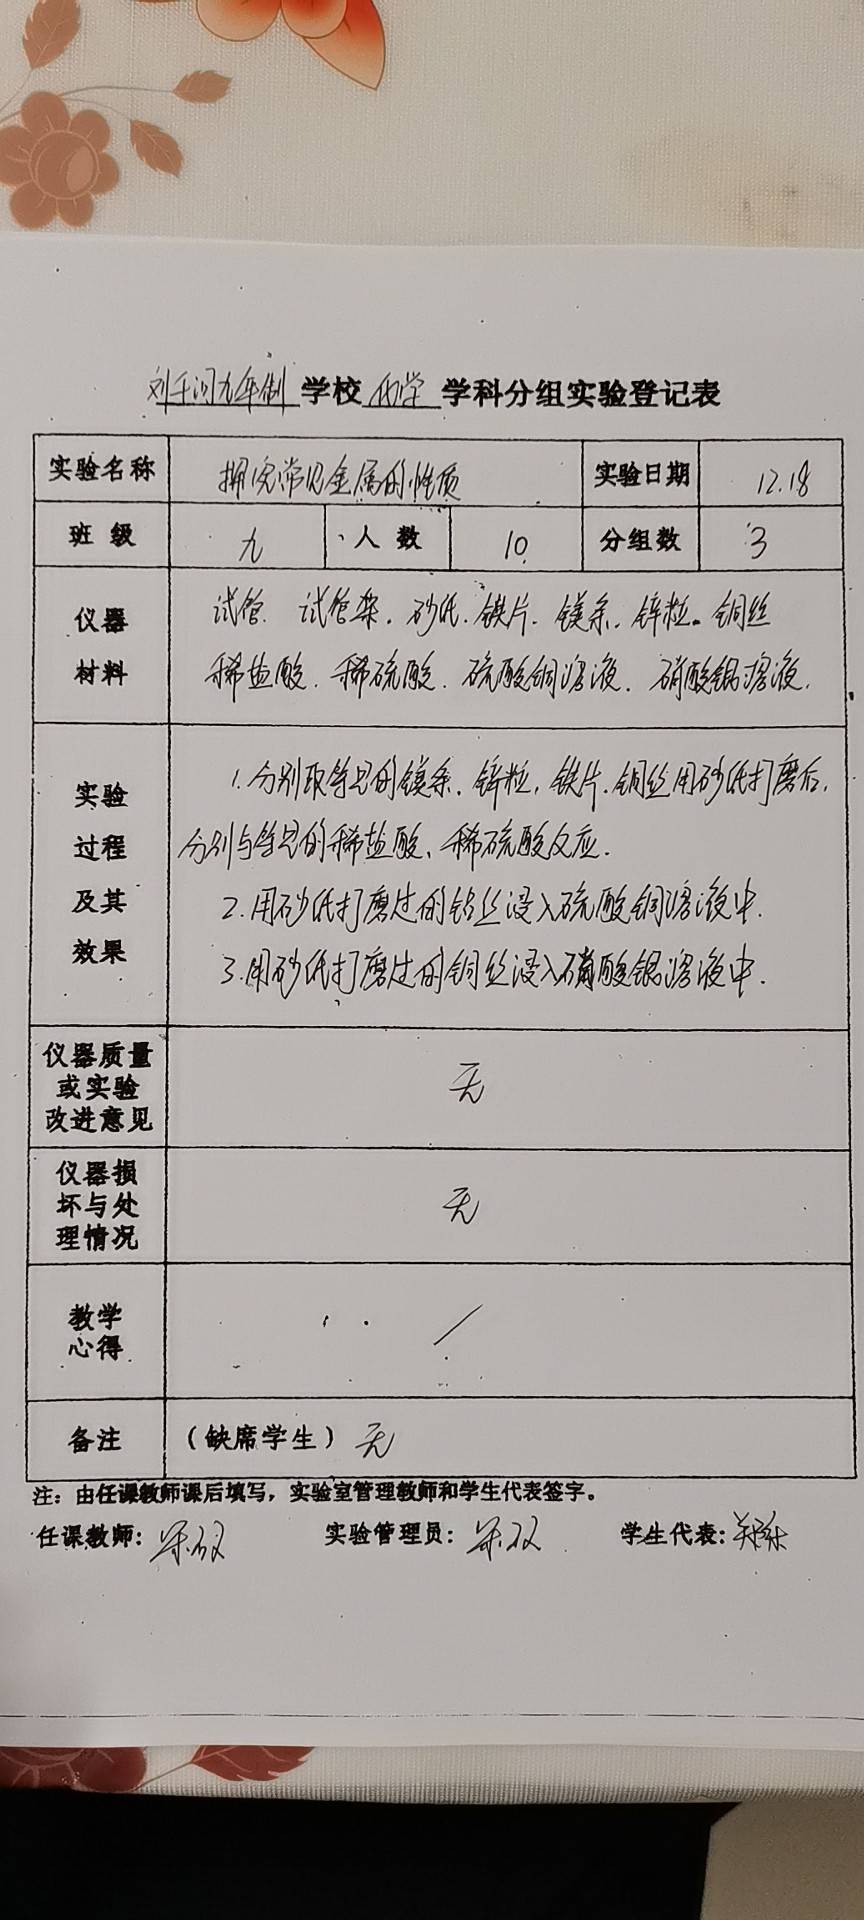 刘千河九年制 学校 化学 学科分组实验登记表
实验名称 探究常见金属的性质 实验日期 12.18
班级 九 人数 10 分组数 3
仪器材料
试管. 试管架. 砂纸. 铁片. 镁条. 锌粒. 铜丝
稀盐酸. 稀硫酸. 硫酸铜溶液. 硝酸银溶液.
实验过程及其效果
1. 分别取等量的镁条. 锌粒, 铁片. 铜丝用砂纸打磨后,
分别与等量的稀盐酸、稀硫酸反应.
2. 用砂纸打磨过的铝丝浸入硫酸铜溶液中.
3. 用砂纸打磨过的铜丝浸入硝酸银溶液中.
仪器质量或实验改进意见 无
仪器损坏与处理情况 无
教学心得 /
备注 (缺席学生) 无
注：由任课教师课后填写，实验室管理教师和学生代表签字。
任课教师: 实验管理员: 学生代表: